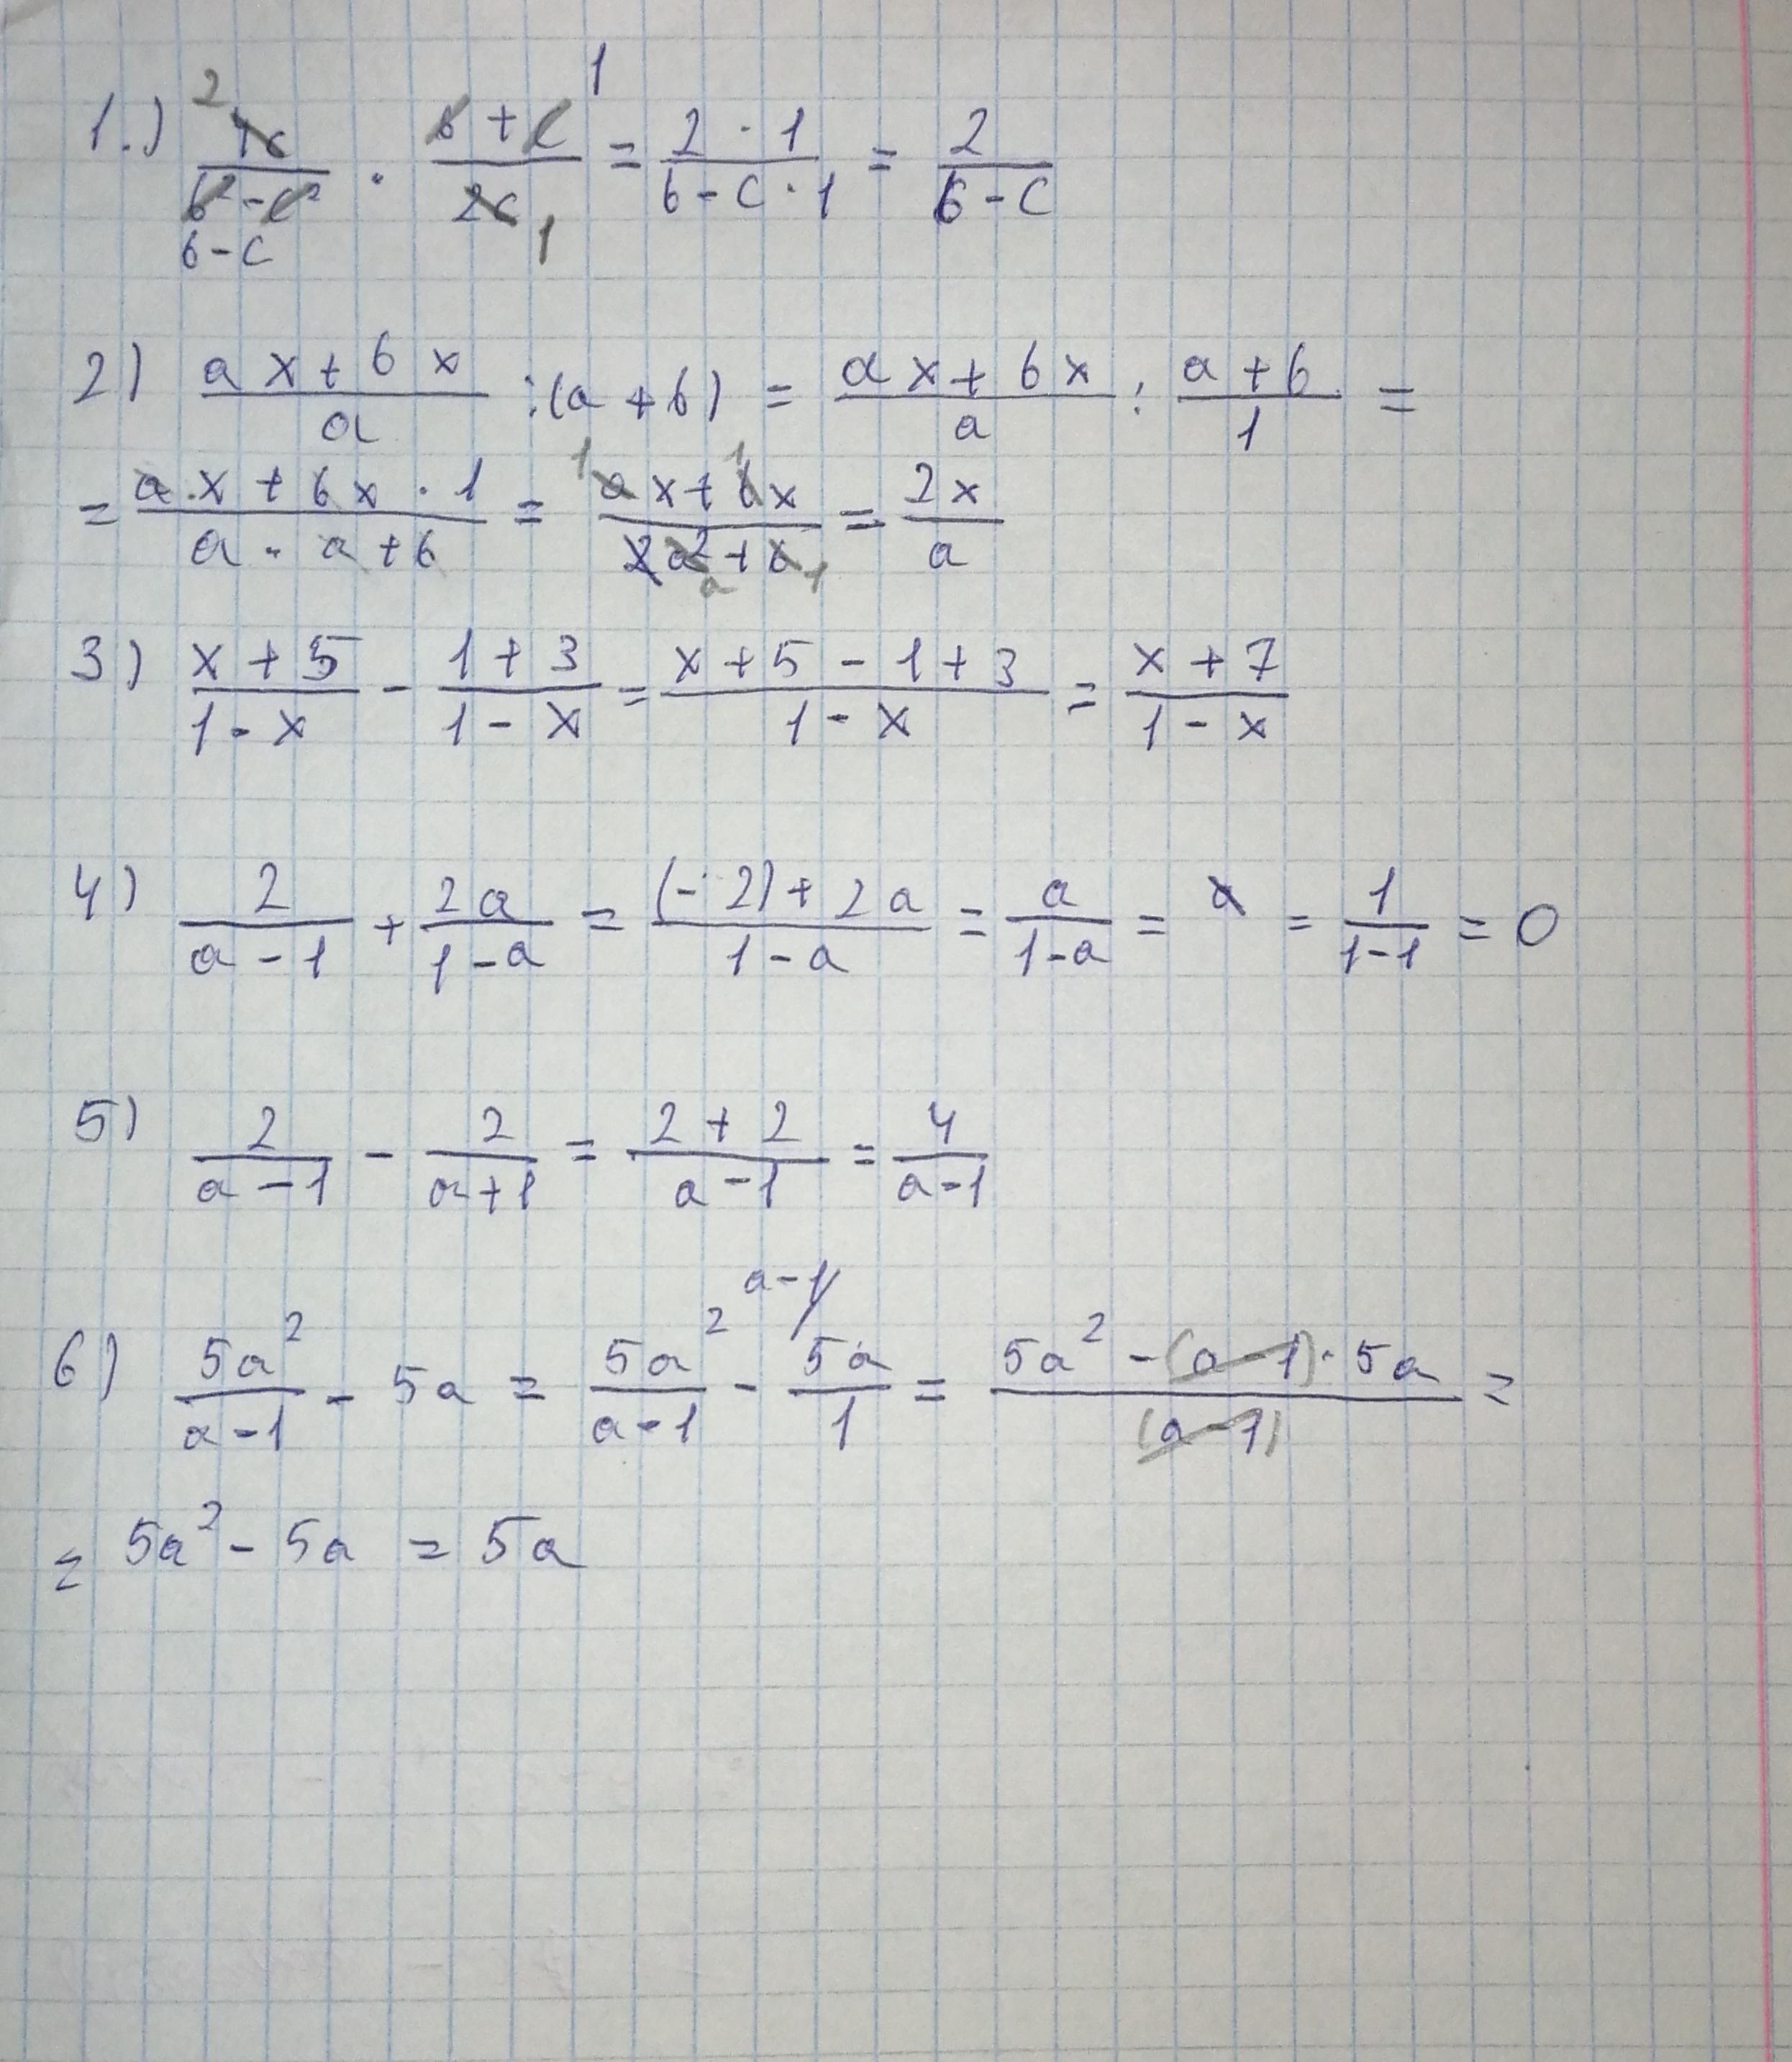 1.) 4c/(b²-c²) · (b+c)/2c = (2·1)/(b-c·1) = 2/(b-c)
2 1 b-c 1
2) (ax+bx)/a :(a+b) = (ax+bx)/a : (a+b)/1 =
= (a·x+bx·1)/(a·a+b) = (ax+bx)/(2a²+b) = 2x/a
1 1 a 1
3) (x+5)/(1-x) - (1+3)/(1-x) = (x+5-1+3)/(1-x) = (x+7)/(1-x)
4) 2/(a-1) + 2a/(1-a) = ((-2)+2a)/(1-a) = a/(1-a) = a = 1/(1-1) = 0
5) 2/(a-1) - 2/(a+1) = (2+2)/(a-1) = 4/(a-1)
a-1/
6) 5a²/(a-1) - 5a = 5a²/(a-1) - 5a/1 = (5a²-(a-1)·5a)/(a-1) =
= 5a² - 5a = 5a